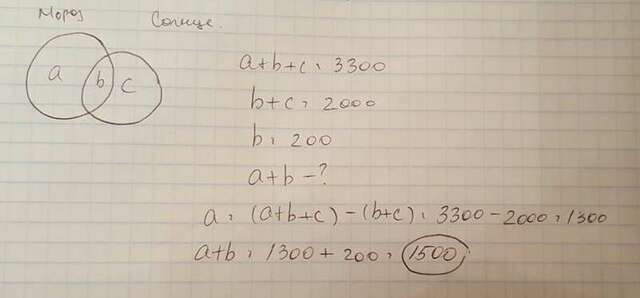 Мороз Солнце.
a b c
a+b+c = 3300
b+c = 2000
b = 200
a+b - ?
a = (a+b+c) - (b+c) = 3300 - 2000 = 1300
a+b = 1300 + 200 = 1500